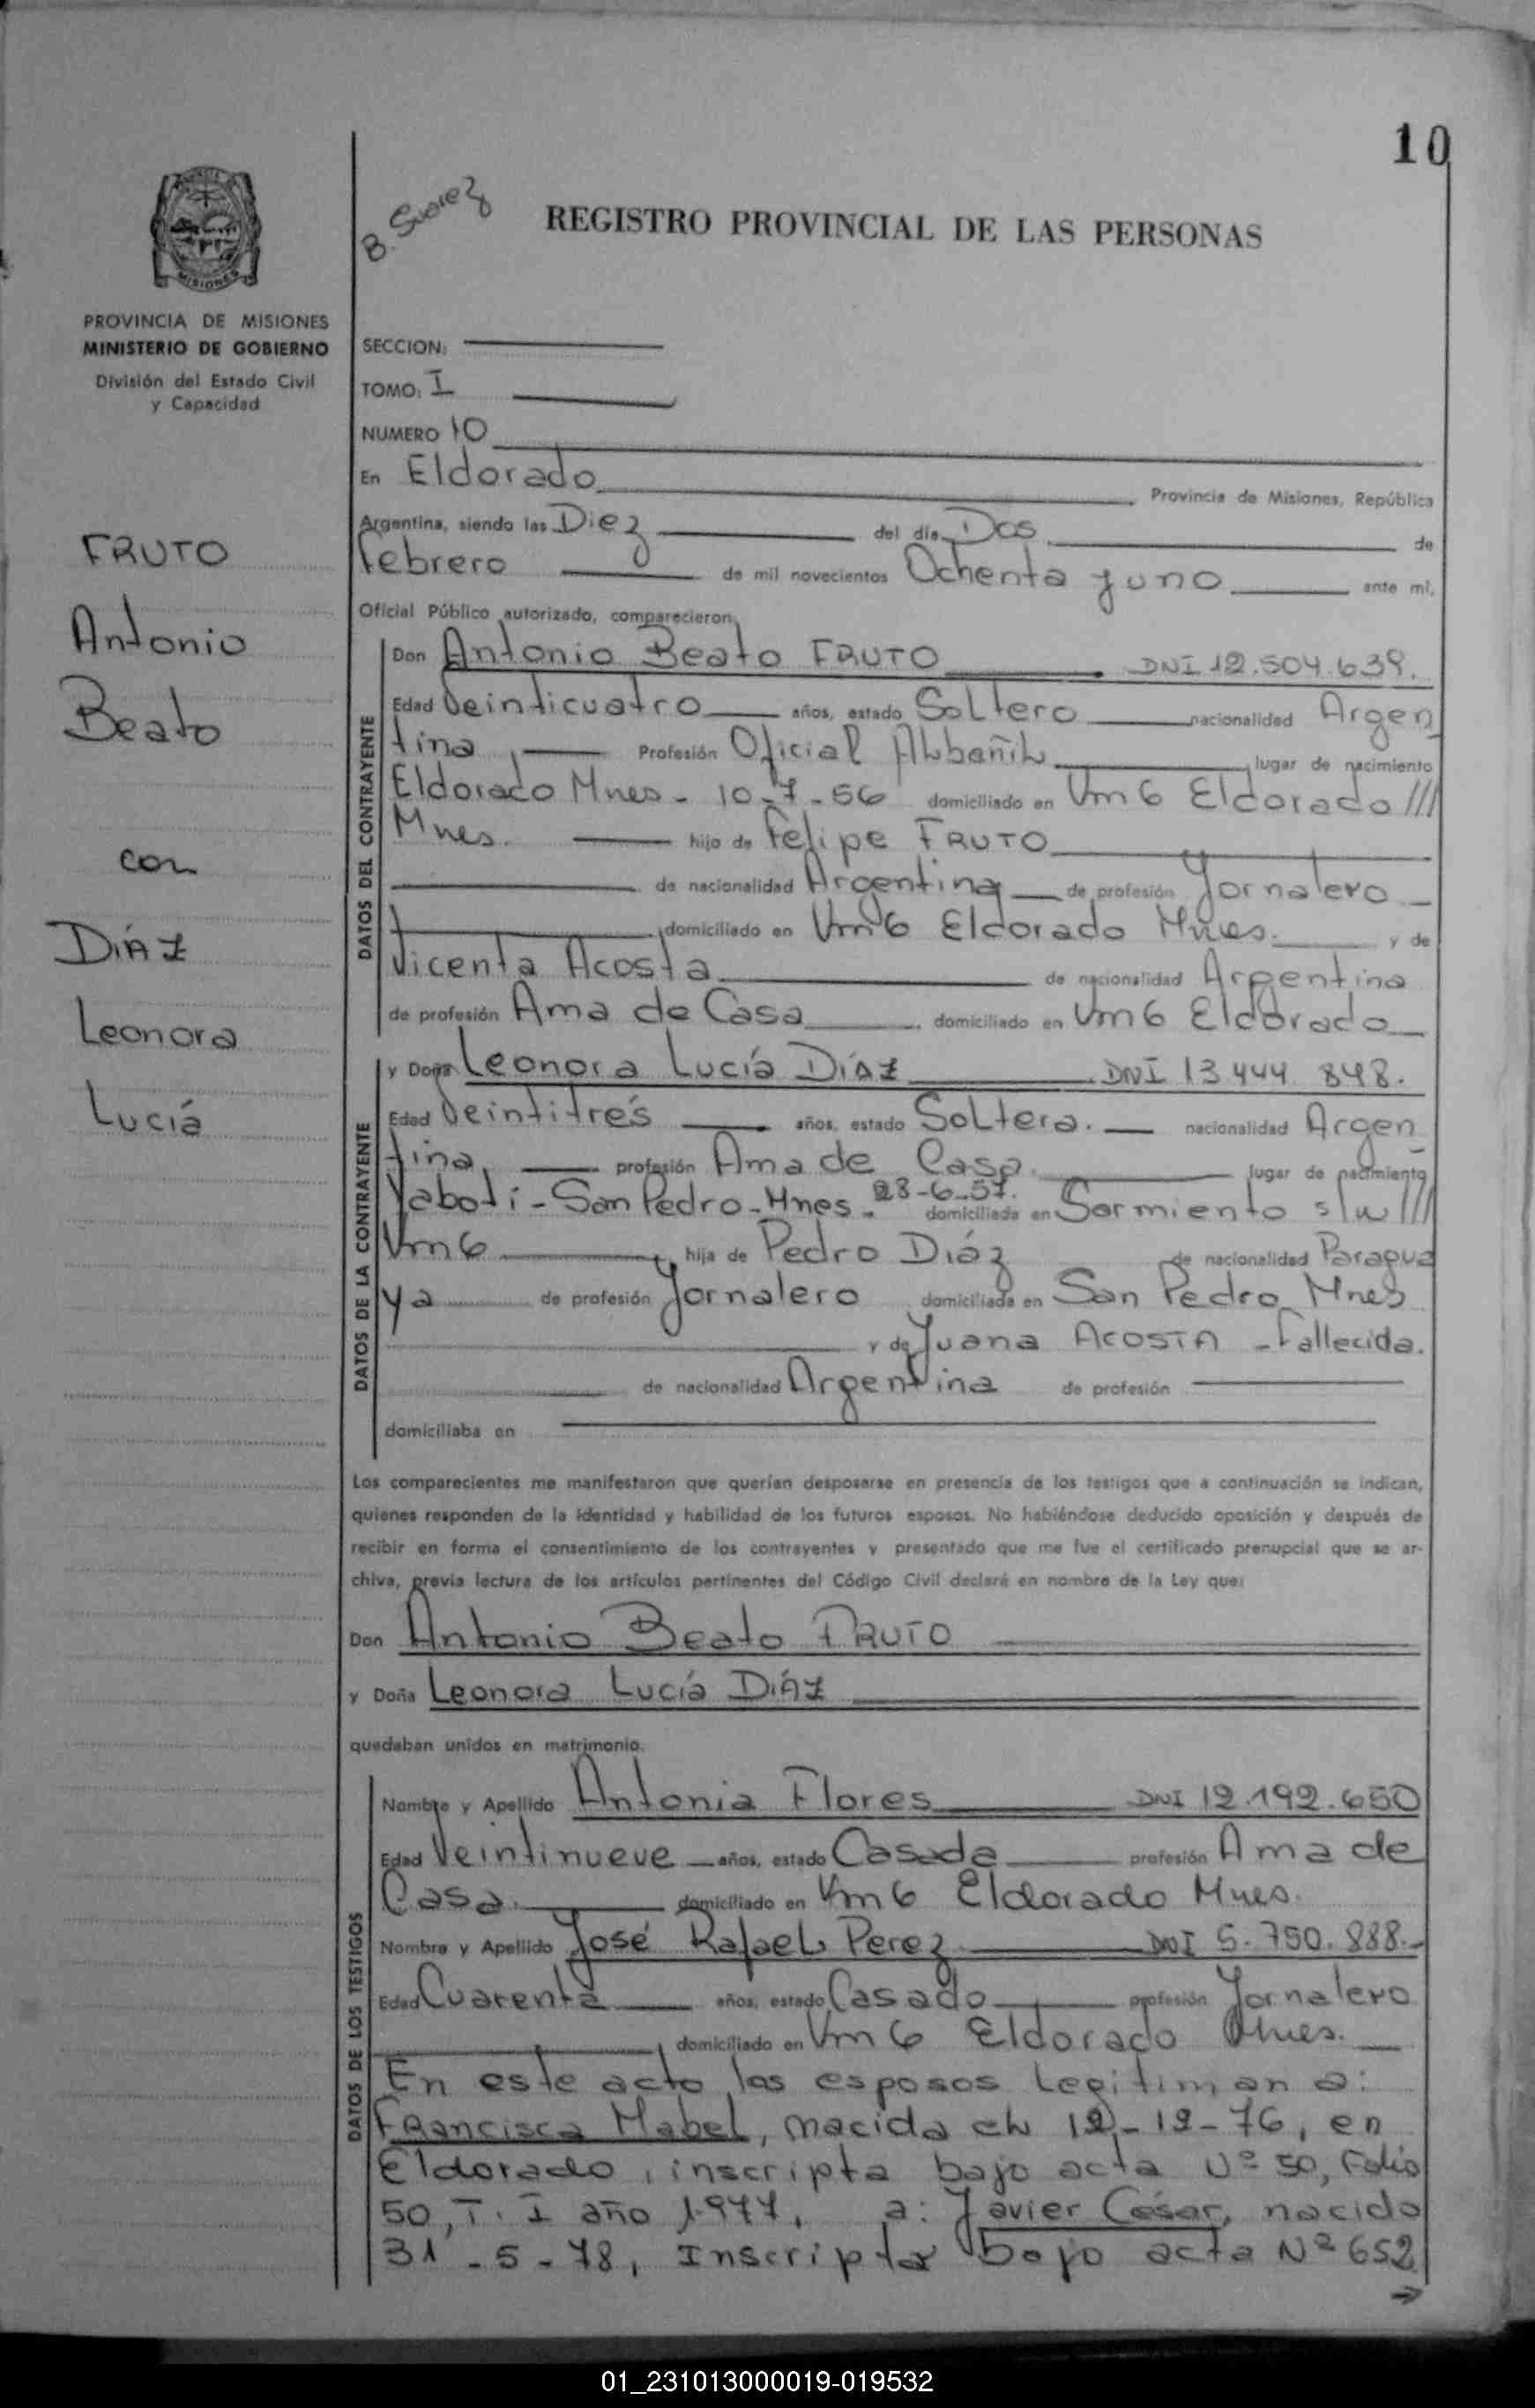 10
B. Suarez
REGISTRO PROVINCIAL DE LAS PERSONAS
MISIONES
PROVINCIA DE MISIONES
MINISTERIO DE GOBIERNO
División del Estado Civil
y Capacidad
FRUTO
Antonio
Beato
con
DÍAZ
Leonora
Lucía
SECCION:
TOMO: I
NUMERO 10
En Eldorado Provincia de Misiones, República
Argentina, siendo las Diez del día Dos de
febrero de mil novecientos Ochenta y uno ante mí,
Oficial Público autorizado, comparecieron:
DATOS DEL CONTRAYENTE
Don Antonio Beato FRUTO DNI 12.504.639.
Edad Veinticuatro años, estado Soltero nacionalidad Argen
tina Profesión Oficial Albañil lugar de nacimiento
Eldorado Mnes - 10-7-56 domiciliado en Km 6 Eldorado ///
Mnes. hijo de Felipe FRUTO
de nacionalidad Argentina de profesión Jornalero
domiciliado en Km 6 Eldorado Mnes. y de
Vicenta Acosta de nacionalidad Argentina
de profesión Ama de Casa domiciliado en Km 6 Eldorado
DATOS DE LA CONTRAYENTE
y Doña Leonora Lucía DÍAZ DNI 13.444.848.
Edad Veintitrés años, estado Soltera. nacionalidad Argen
tina, profesión Ama de Casa. lugar de nacimiento
Yaboti - San Pedro - Mnes. 28-6-57. domiciliada en Sarmiento s/n ///
Km 6 hija de Pedro Díaz de nacionalidad Paragua
ya de profesión Jornalero domiciliada en San Pedro Mnes
y de Juana ACOSTA - Fallecida.
de nacionalidad Argentina de profesión
domiciliaba en
Los comparecientes me manifestaron que querían desposarse en presencia de los testigos que a continuación se indican,
quienes responden de la identidad y habilidad de los futuros esposos. No habiéndose deducido oposición y después de
recibir en forma el consentimiento de los contrayentes y presentado que me fue el certificado prenupcial que se ar-
chiva, previa lectura de los artículos pertinentes del Código Civil declaré en nombre de la Ley que:
Don Antonio Beato FRUTO
y Doña Leonora Lucía DÍAZ
quedaban unidos en matrimonio.
DATOS DE LOS TESTIGOS
Nombre y Apellido Antonia Flores DNI 12.192.650
Edad Veintinueve años, estado Casada profesión Ama de
Casa. domiciliado en Km 6 Eldorado Mnes.
Nombre y Apellido José Rafael Perez DNI 5.750.888.-
Edad Cuarenta años, estado Casado profesión Jornalero
domiciliado en Km 6 Eldorado Mnes.
En este acto los esposos Legitiman a:
Francisca Mabel, nacida el 12-12-76, en
Eldorado, inscripta bajo acta Nº 50, Folio
50, T. I año 1.977, a: Javier César, nacido
31-5-78, Inscripto bajo acta Nº 652
01_231013000019-019532